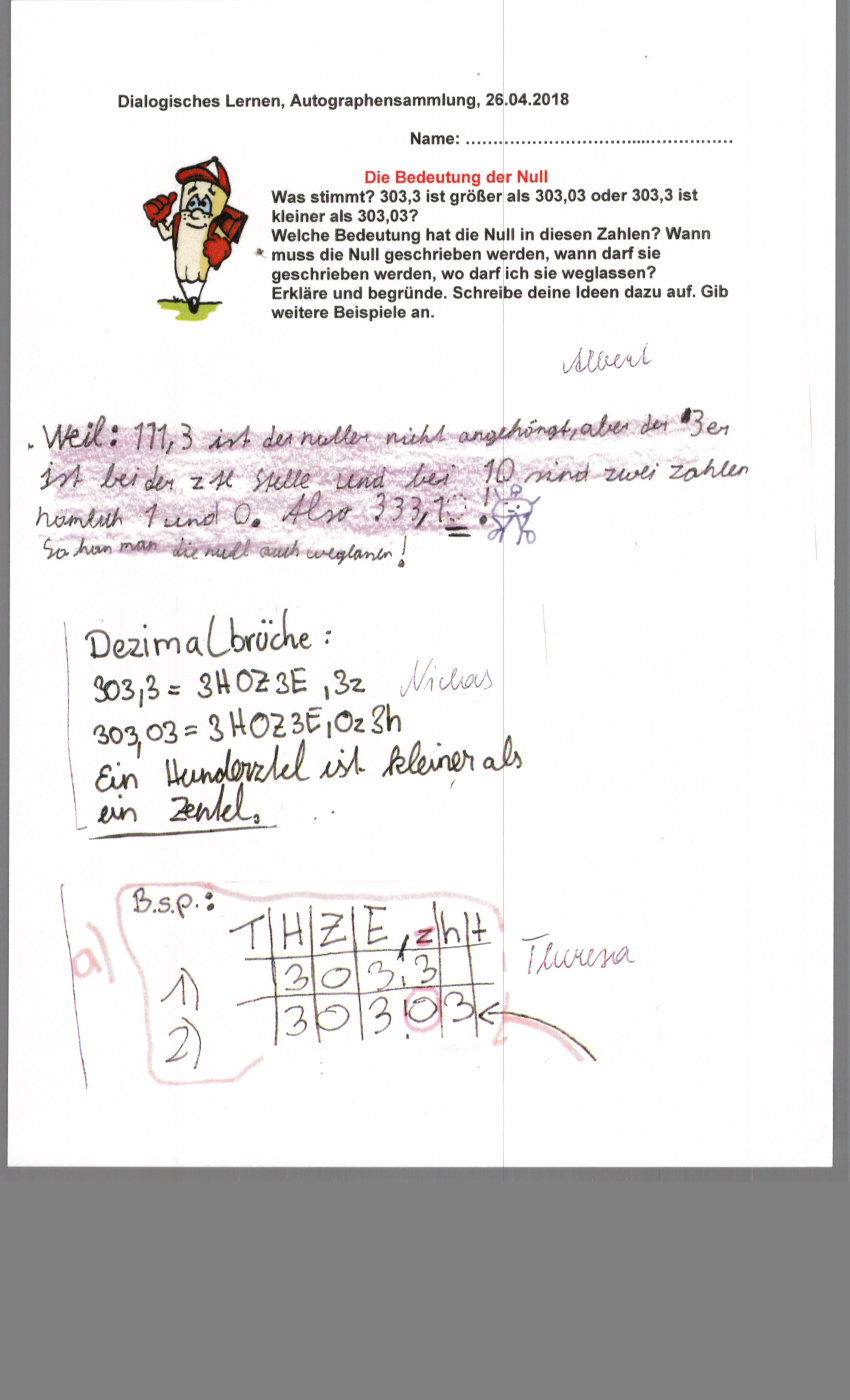 Dialogisches Lernen, Autographensammlung, 26.04.2018
Name: ……………………………....……………
Die Bedeutung der Null
Was stimmt? 303,3 ist größer als 303,03 oder 303,3 ist
kleiner als 303,03?
Welche Bedeutung hat die Null in diesen Zahlen? Wann
* muss die Null geschrieben werden, wann darf sie
geschrieben werden, wo darf ich sie weglassen?
Erkläre und begründe. Schreibe deine Ideen dazu auf. Gib
weitere Beispiele an.
Albert
. Weil: 111,3 ist der nuller nicht angehöngt, aber der 3er
ist bei der ztl stelle und bei 10 sind zwei zahlen
hämlich 1 und 0. Also 333,10!
So kan man die null auch weglassen!
Dezimalbrüche:
303,3 = 3H0Z3E,3z
Niclas
303,03 = 3H0Z3E,0z3h
Ein Hunderztel ist kleiner als
ein Zentel.
B.s.p.:
T H Z E , z h t
Theresa
a)
1) 3 0 3,3
2) 3 0 3,0 3